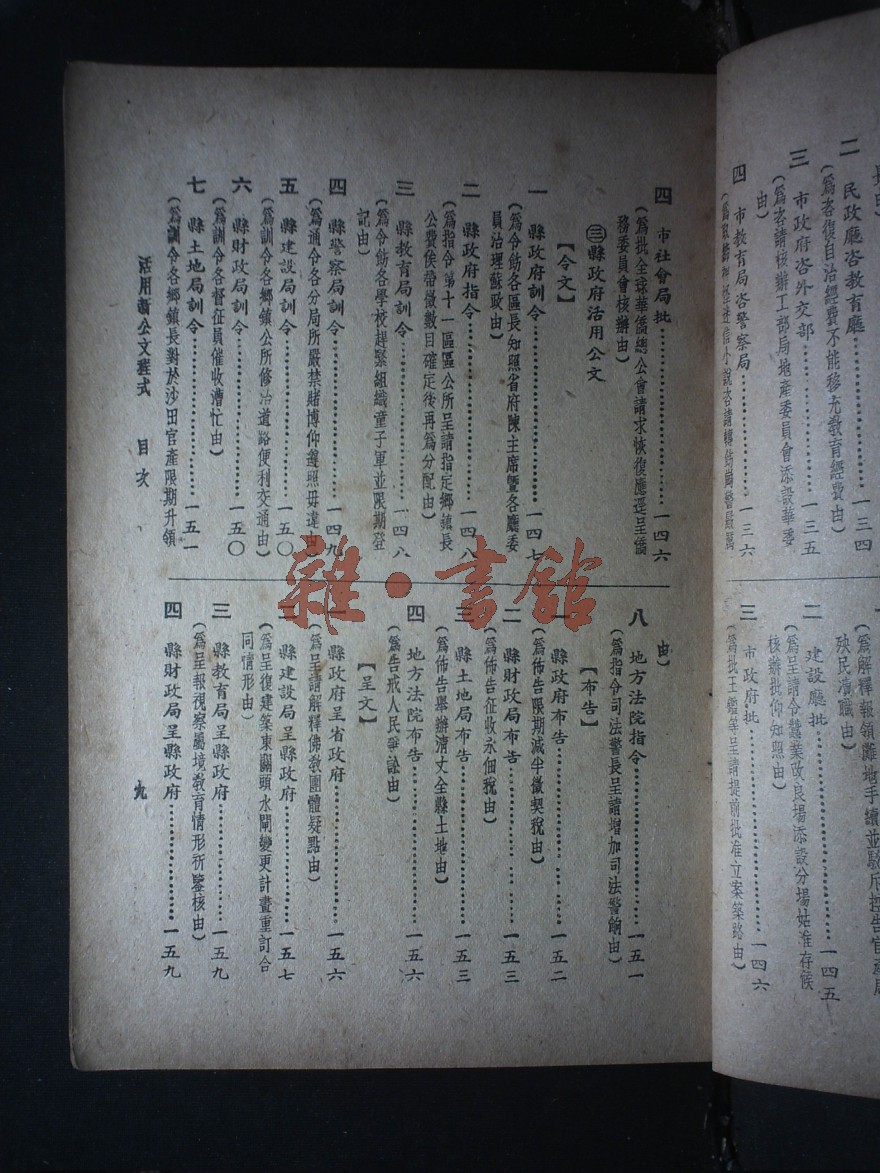 二 民政廳咨教育廳…………一三四
（爲咨復自治經費不能移充教育經費由）
三 市政府咨外交部…………一三五
（爲咨請核辦工部局地產委員會添設華委
由）
四 市教育局咨警察局…………一三六
爲解釋報領灘地手續並駁斥控告官產局
殃民瀆職由）
二 建設廳批…………一四五
（爲呈請令蠶業改良場添設分場姑准存候
核辦批仰知照由）
三 市政府批…………一四六
（爲批王鑑等呈請提前批准立案築路由）
四 市社會局批…………一四六
（爲批全球華僑總公會請求恢復應逕呈僑
務委員會核辦由）
㊂縣政府活用公文
【令文】
一 縣政府訓令…………一四七
（爲令飭各區長知照省府陳主席暨各廳委
員治理蘇政由）
二 縣政府指令…………一四八
（爲指令第十一區區公所呈請指定鄉鎮長
公費俟帶徵數目確定後再爲分配由）
三 縣教育局訓令…………一四八
（爲令飭各學校趕緊組織童子軍並限期登
記由）
四 縣警察局訓令…………一四九
（爲通令各分局所嚴禁賭博仰遵照毋違由）
五 縣建設局訓令…………一五〇
（爲訓令各鄉鎮公所修治道路便利交通由）
六 縣財政局訓令…………一五〇
（爲訓令各督征員催收漕忙由）
七 縣土地局訓令…………一五一
（爲訓令各鄉鎮長對於沙田官產限期升領
由）
八 地方法院指令…………一五一
（爲指令司法警長呈請增加司法警餉由）
【布告】
一 縣政府布告…………一五二
（爲佈告限期減半徵契稅由）
二 縣財政局布告…………一五三
（爲佈告征收永佃稅由）
三 縣土地局布告…………一五三
（爲佈告舉辦清丈全縣土地由）
四 地方法院布告…………一五六
（爲告戒人民爭訟由）
【呈文】
一 縣政府呈省政府…………一五六
（爲呈請解釋佛教團體疑點由）
二 縣建設局呈縣政府…………一五七
（爲呈復建築東關頭水閘變更計畫重訂合
同情形由）
三 縣教育局呈縣政府…………一五九
（爲呈報視察屬境教育情形祈鑒核由）
四 縣財政局呈縣政府…………一五九
活用新公文程式 目次 九
雜·書館